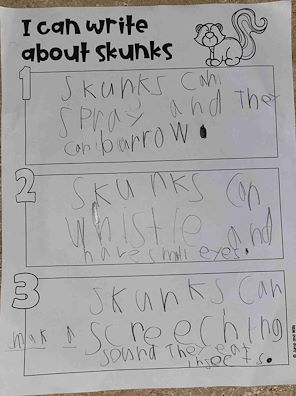 I can write
about skunks
1
Skunks Can
Spray and They
can barrow.
2
Skunks Can
whistle and
have small eyes.
3
Skunks Can
mak a Screeching
sound They eat
insects.